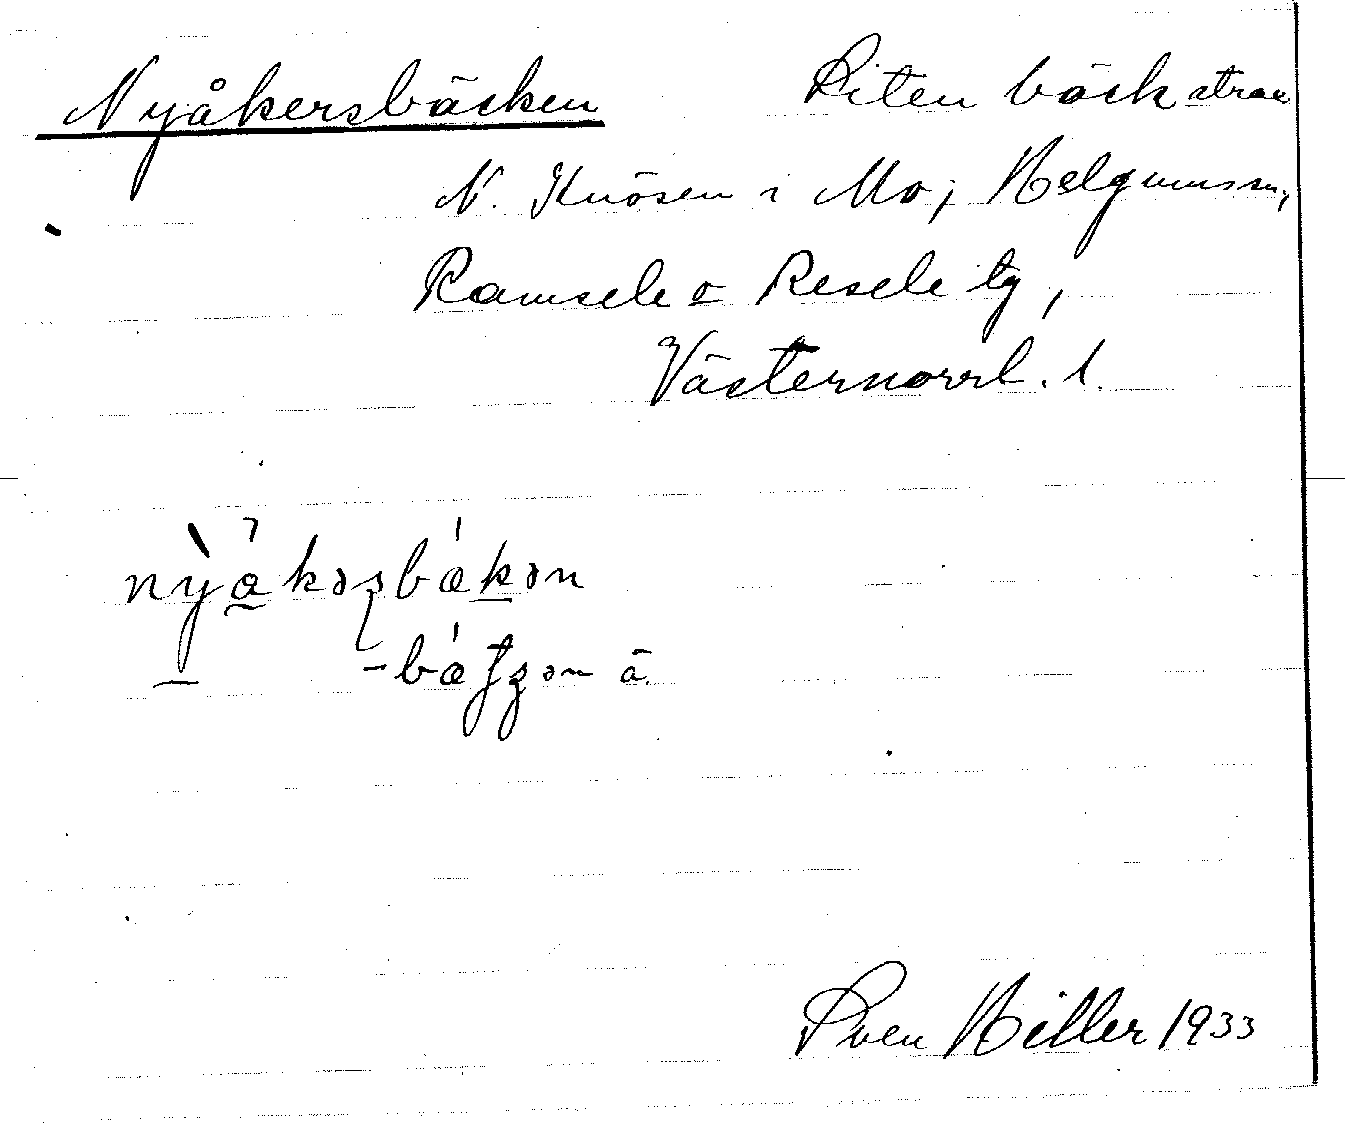 Nyåkersbäcken Liten bäck strax
N. Knösen i Mo, Helgumssn,
Ramsele o Resele tg,
Västernorrl. l.
nyåkəsbækən
-bætʃən ä.
Sven Hiller 1933